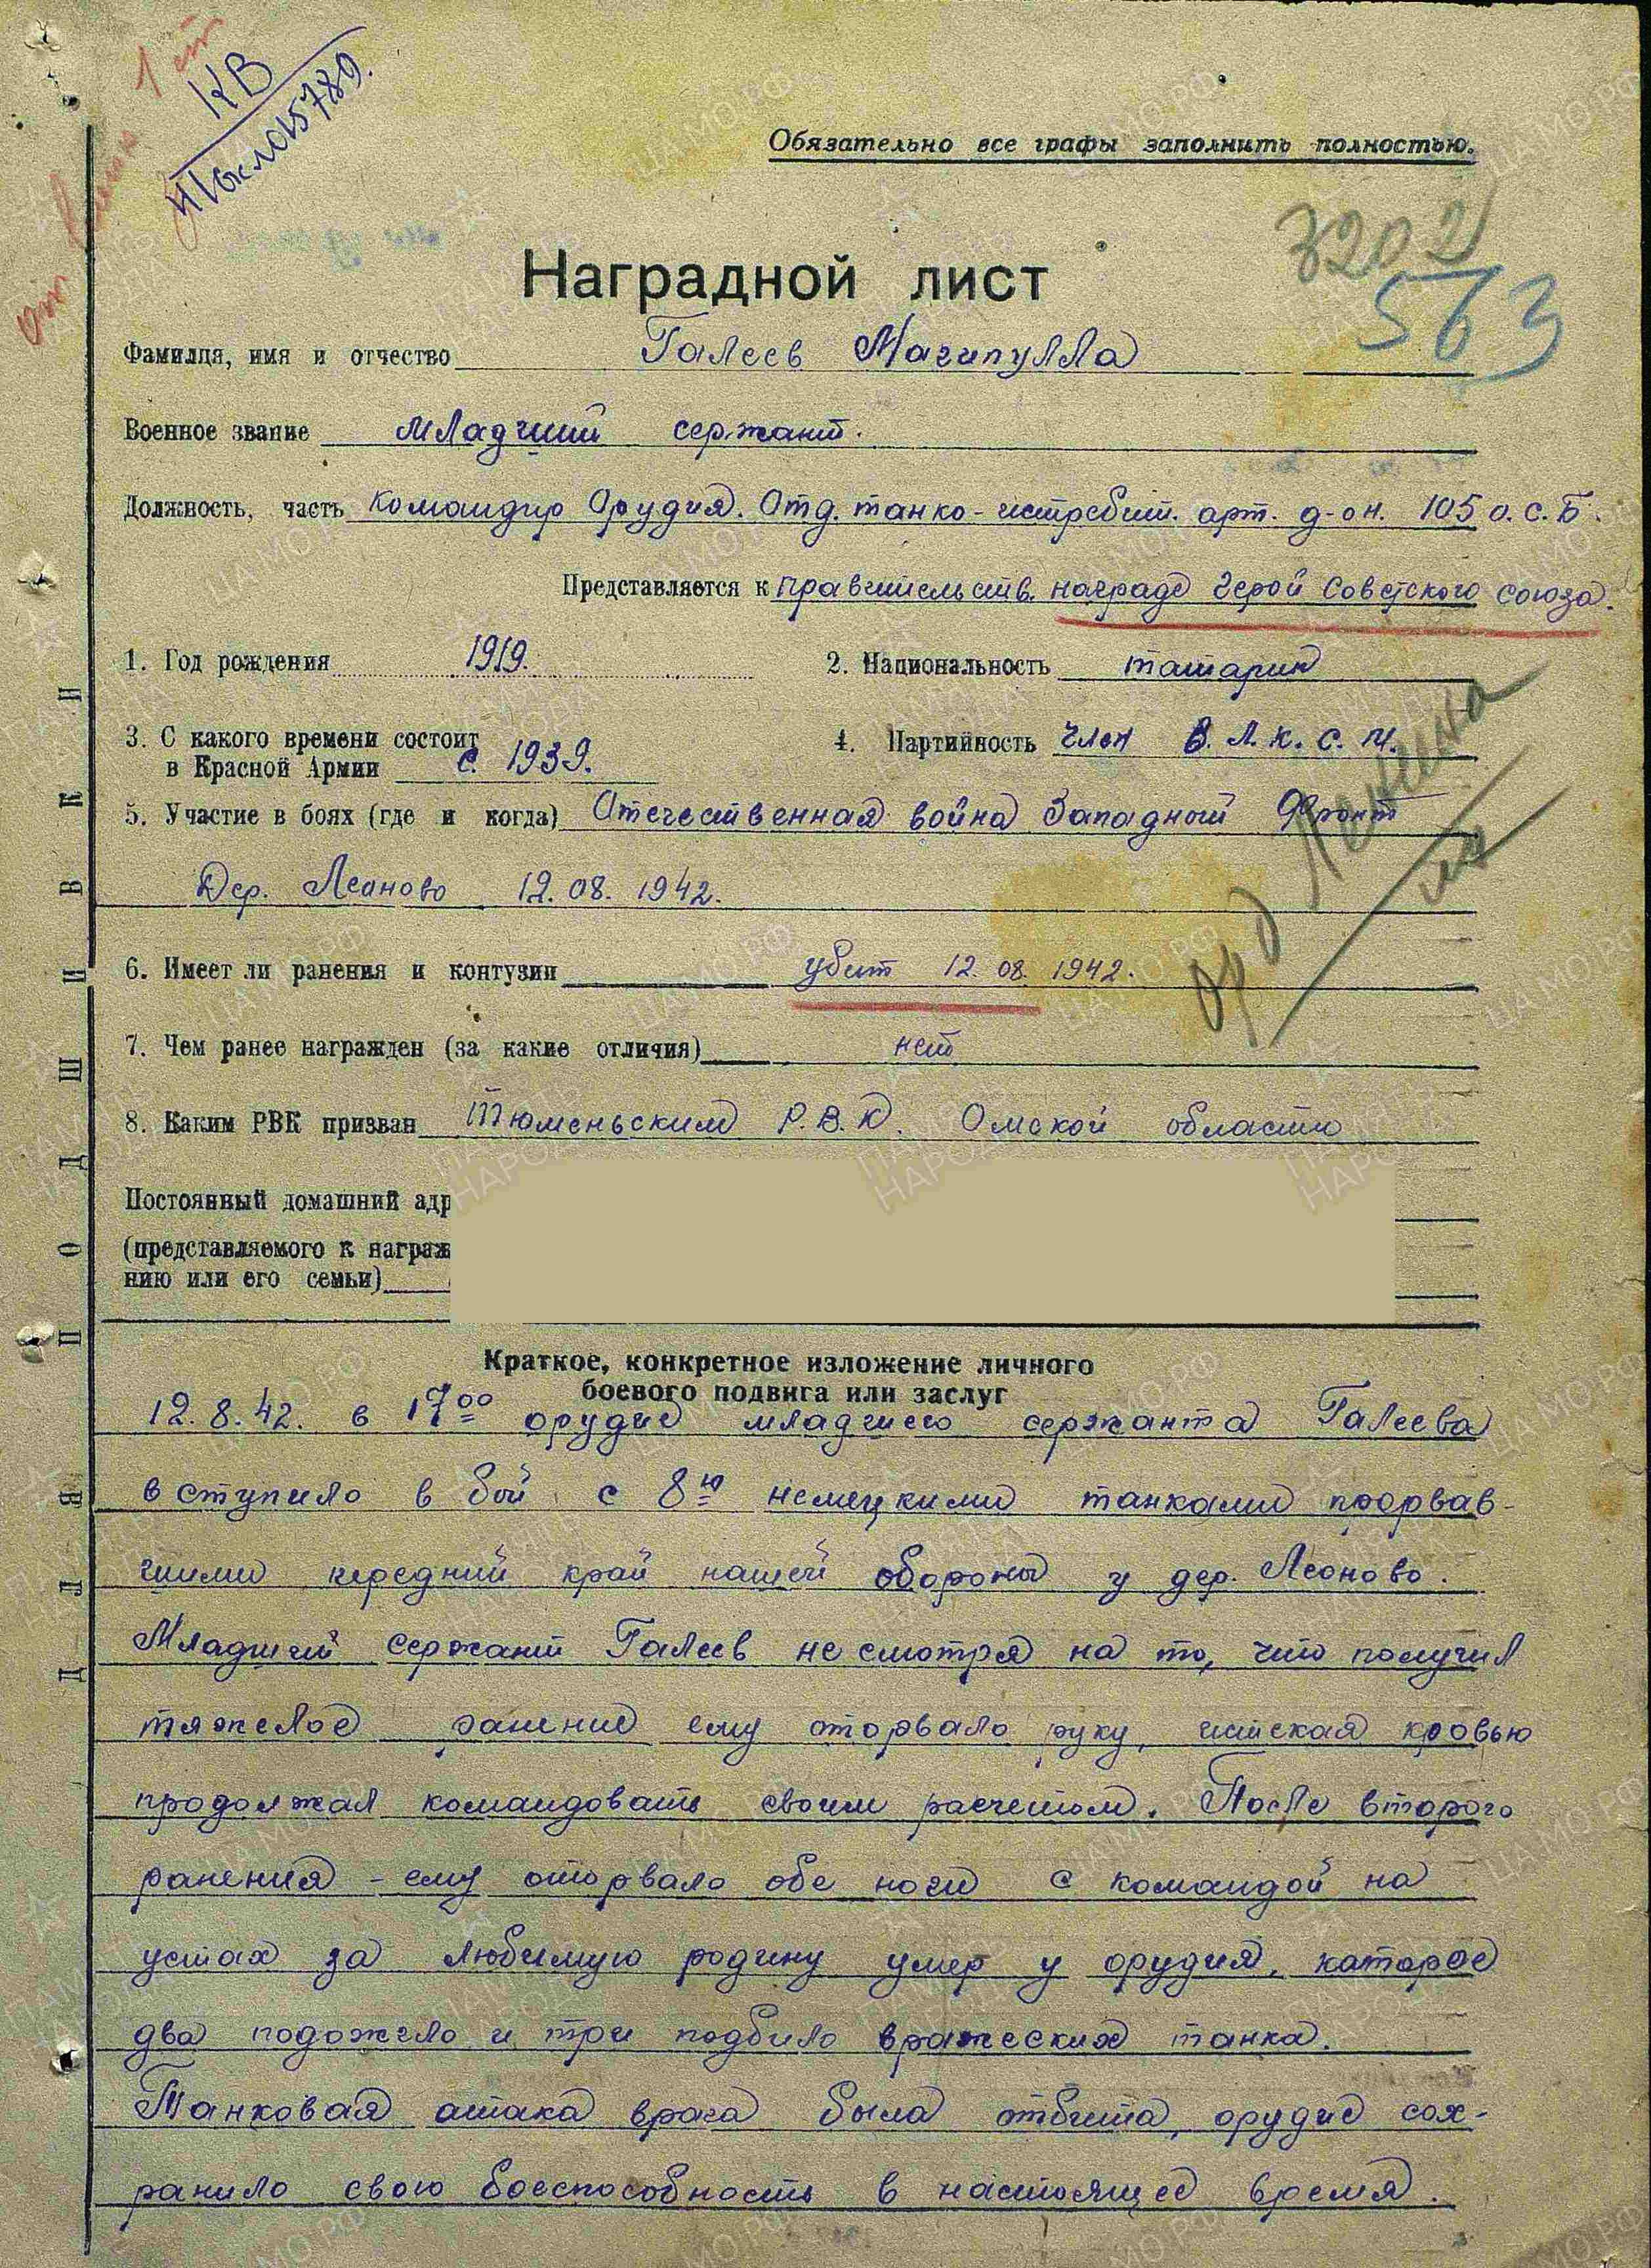 1 ст
КВ
015789.
Обязательно все графы заполнить полностью.
3202
563
Наградной лист
Фамилия, имя и отчество Галеев Магипулла
Военное звание младший сержант.
Должность, часть Командир Орудия. Отд. танко-истребит. арт. д-он. 105 о.с.Б.
Представляется к правительств. награде Герой Советского союза.
1. Год рождения 1919.
2. Национальность татарин
3. С какого времени состоит
в Красной Армии с 1939.
4. Партийность член В.Л.К.С.М.
5. Участие в боях (где и когда) Отечественная война Западный Фронт
Дер. Леоново 12.08.1942.
орд Ленина
6. Имеет ли ранения и контузии убит 12.08.1942.
7. Чем ранее награжден (за какие отличия) нет
8. Каким РВК призван Тюменьским Р.В.К. Омской области
Постоянный домашний адр
(представляемого к награж
нию или его семьи)
Краткое, конкретное изложение личного
боевого подвига или заслуг
12.8.42. в 17⁰⁰ орудие младшего сержанта Галеева
вступило в бой с 8ю немецкими танками прорвав-
шими передний край нашей обороны у дер. Леоново.
Младший сержант Галеев не смотря на то, что получил
тяжелое ранение ему оторвало руку, истекая кровью
продолжал командовать своим расчетом. После второго
ранения - ему оторвало обе ноги с командой на
устах за любимую родину умер у орудия, каторое
два подожгло и три подбило вражеских танка.
Танковая атака врага была отбита, орудие сох-
ранило свою боеспособность в настоящее время.
ДЛЯ ПОДШИВКИ